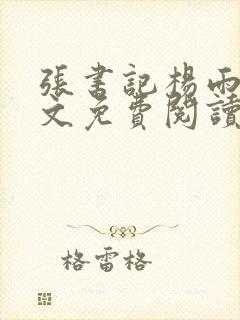 張書記楊雨
文免費閱讀
格雷格